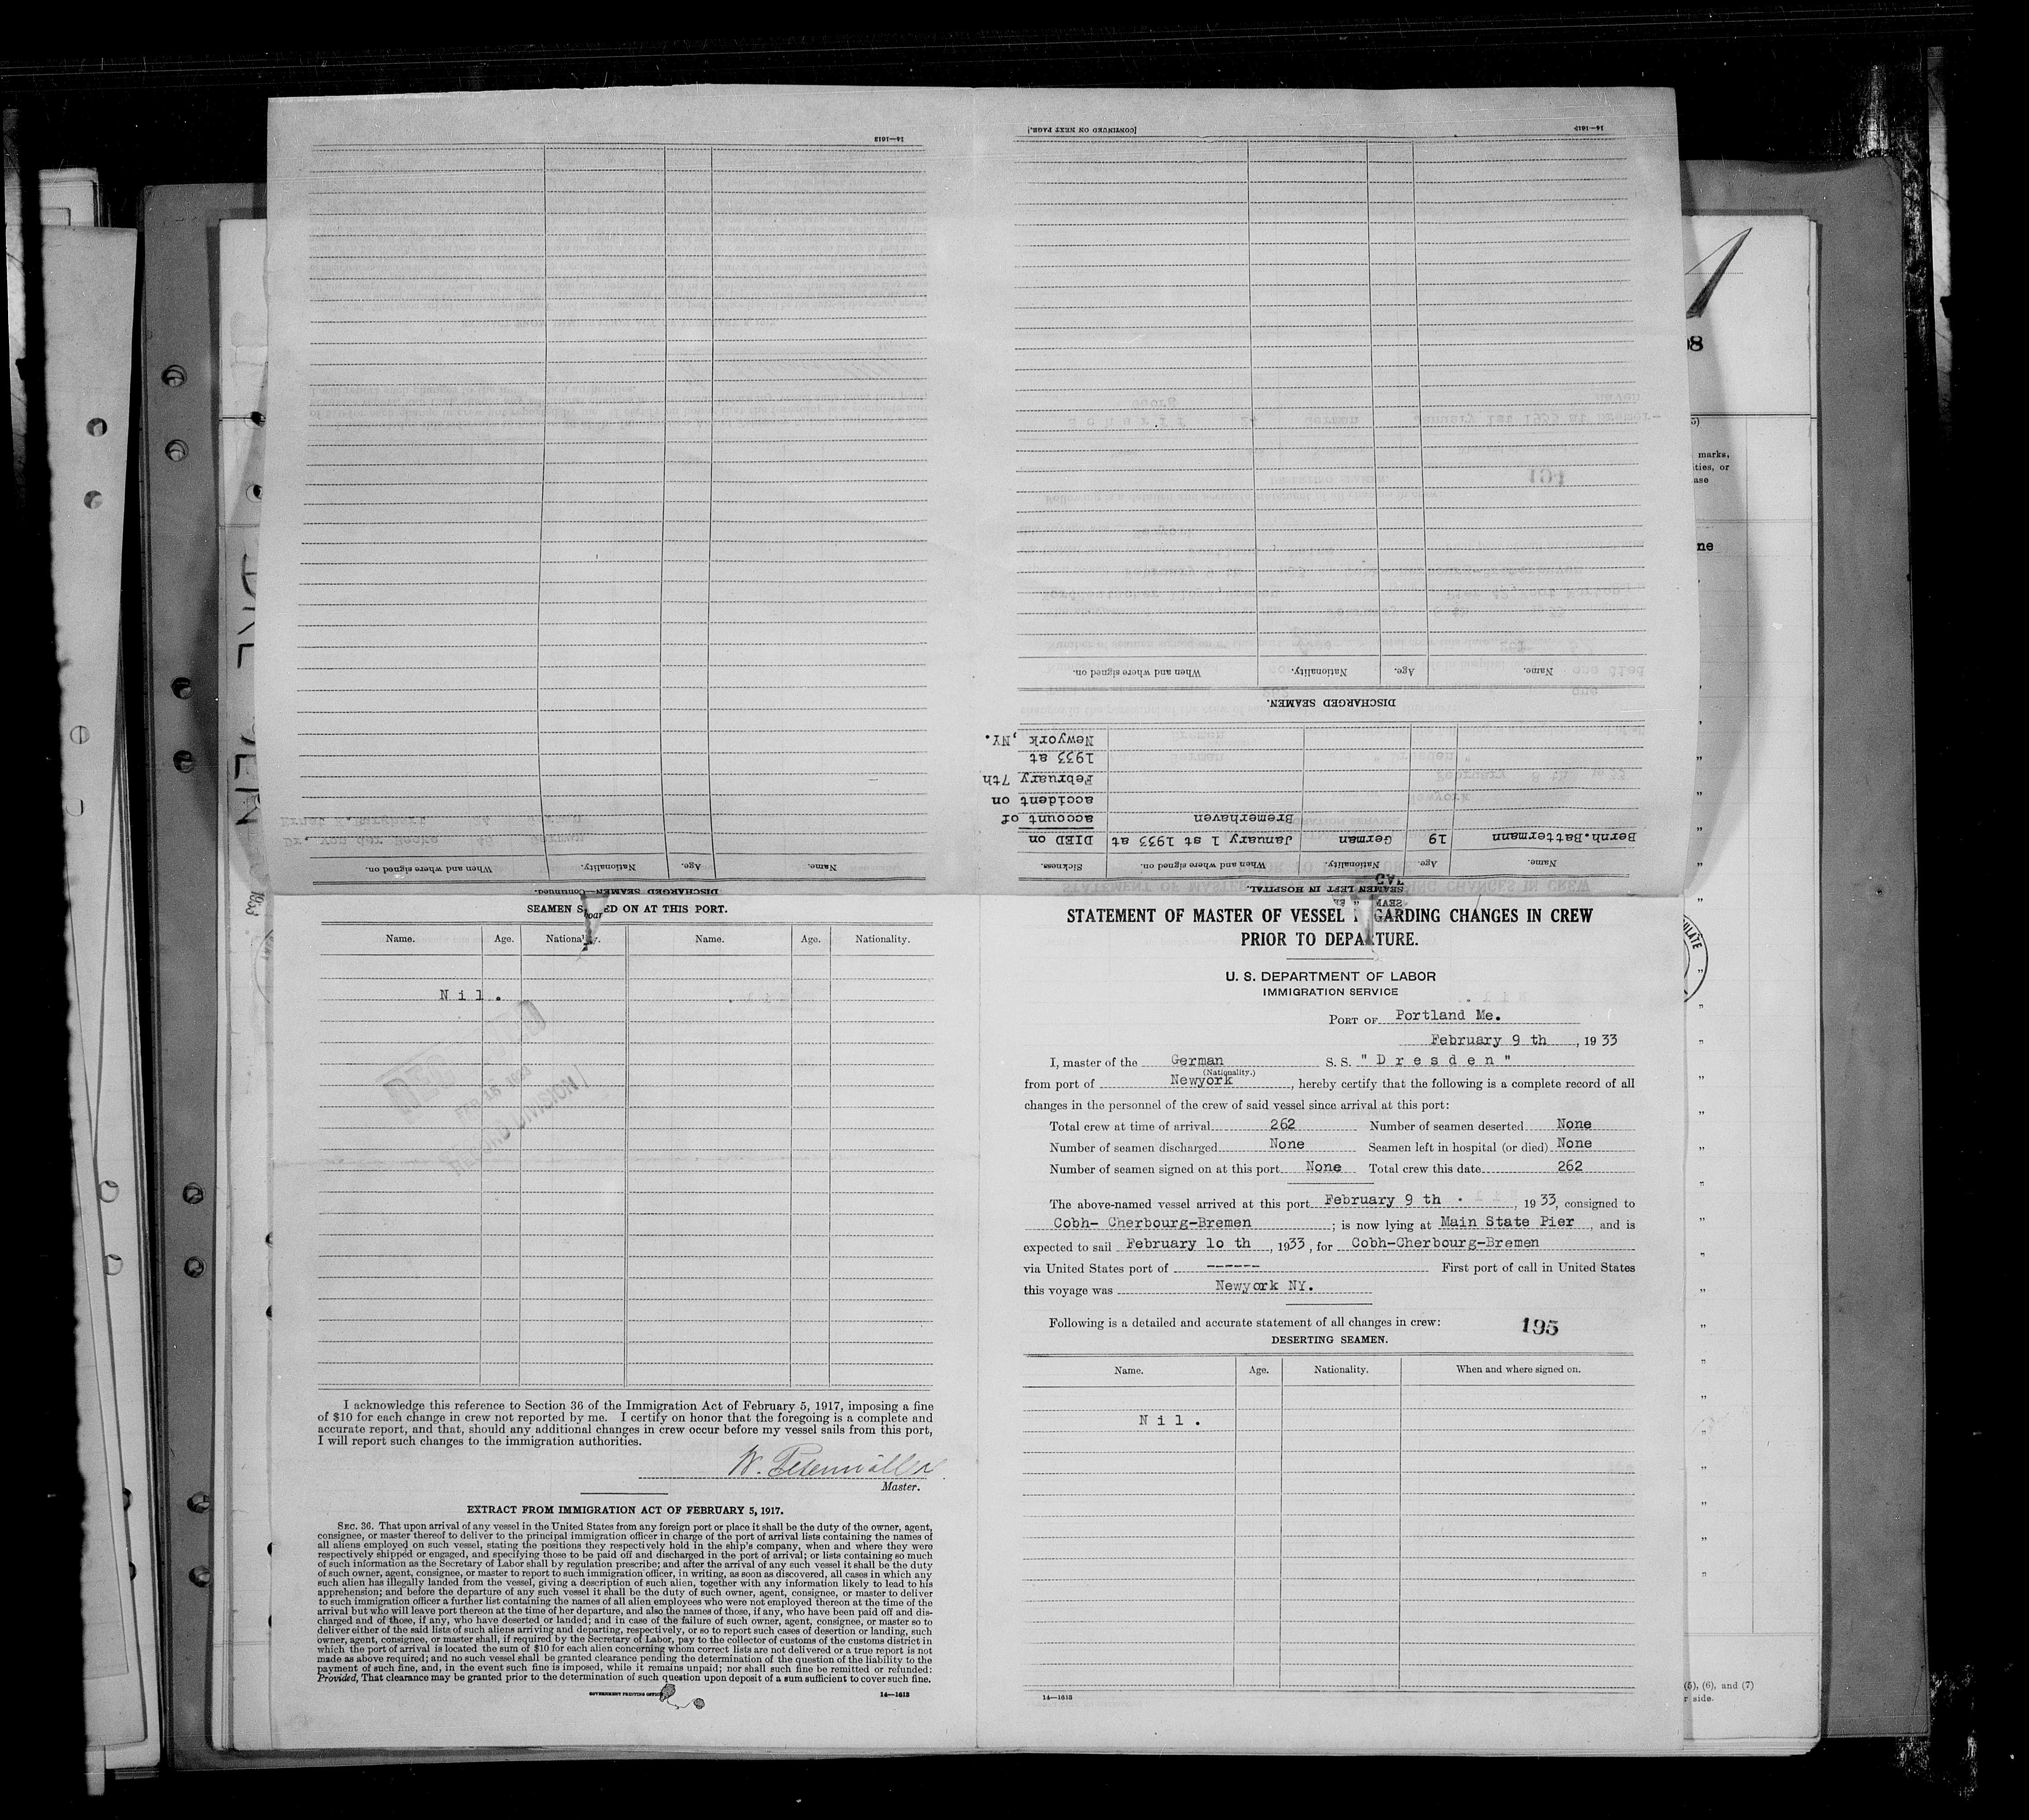 14—1613
[CONTINUED ON NEXT PAGE.]
14—1613
When and where signed on.
Nationality.
Age.
Name.
DISCHARGED SEAMEN.
Newyork ,NY.
1933 at
February 7th
accident on
account of
Bremerhaven
Bernh.Battermann 19 German January 1 st 1933 at DIED on
Name. Age. Nationality. When and where signed on. Sickness.
SEAMEN LEFT IN HOSPITAL.
Name. Age. Nationality. When and where signed on.
DISCHARGED SEAMEN—Continued.
SEAMEN S ED ON AT THIS PORT.
Name. Age. Nationality. Name. Age. Nationality.
N i l .
FEB 16 1933
RECORD DIVISION
I acknowledge this reference to Section 36 of the Immigration Act of February 5, 1917, imposing a fine
of $10 for each change in crew not reported by me. I certify on honor that the foregoing is a complete and
accurate report, and that, should any additional changes in crew occur before my vessel sails from this port,
I will report such changes to the immigration authorities.
Master.
EXTRACT FROM IMMIGRATION ACT OF FEBRUARY 5, 1917.
SEC. 36. That upon arrival of any vessel in the United States from any foreign port or place it shall be the duty of the owner, agent,
consignee, or master thereof to deliver to the principal immigration officer in charge of the port of arrival lists containing the names of
all aliens employed on such vessel, stating the positions they respectively hold in the ship's company, when and where they were
respectively shipped or engaged, and specifying those to be paid off and discharged in the port of arrival; or lists containing so much
of such information as the Secretary of Labor shall by regulation prescribe; and after the arrival of any such vessel it shall be the duty
of such owner, agent, consignee, or master to report to such immigration officer, in writing, as soon as discovered, all cases in which any
such alien has illegally landed from the vessel, giving a description of such alien, together with any information likely to lead to his
apprehension; and before the departure of any such vessel it shall be the duty of such owner, agent, consignee, or master to deliver
to such immigration officer a further list containing the names of all alien employees who were not employed thereon at the time of the
arrival but who will leave port thereon at the time of her departure, and also the names of those, if any, who have been paid off and dis-
charged and of those, if any, who have deserted or landed; and in case of the failure of such owner, agent, consignee, or master so to
deliver either of the said lists of such aliens arriving and departing, respectively, or so to report such cases of desertion or landing, such
owner, agent, consignee, or master shall, if required by the Secretary of Labor, pay to the collector of customs of the customs district in
which the port of arrival is located the sum of $10 for each alien concerning whom correct lists are not delivered or a true report is not
made as above required; and no such vessel shall be granted clearance pending the determination of the question of the liability to the
payment of such fine, and, in the event such fine is imposed, while it remains unpaid; nor shall such fine be remitted or refunded:
Provided, That clearance may be granted prior to the determination of such question upon deposit of a sum sufficient to cover such fine.
GOVERNMENT PRINTING OFFICE
14—1613
STATEMENT OF MASTER OF VESSEL GARDING CHANGES IN CREW
PRIOR TO DEPARTURE.
U. S. DEPARTMENT OF LABOR
IMMIGRATION SERVICE
PORT OF Portland Me.
February 9 th , 19 33
I, master of the German S. S. " D r e s d e n "
(Nationality.)
from port of Newyork , hereby certify that the following is a complete record of all
changes in the personnel of the crew of said vessel since arrival at this port:
Total crew at time of arrival 262 Number of seamen deserted None
Number of seamen discharged None Seamen left in hospital (or died) None
Number of seamen signed on at this port None Total crew this date 262
The above-named vessel arrived at this port February 9 th . , 19 33, consigned to
Cobh- Cherbourg-Bremen ; is now lying at Main State Pier , and is
expected to sail February 1o th , 1933 , for Cobh-Cherbourg-Bremen
via United States port of ------ First port of call in United States
this voyage was Newyork NY.
Following is a detailed and accurate statement of all changes in crew:
195
DESERTING SEAMEN.
Name. Age. Nationality. When and where signed on.
N i l .
14—1613
marks,
ities, or
ase
ne
(5), (6), and (7)
r side.